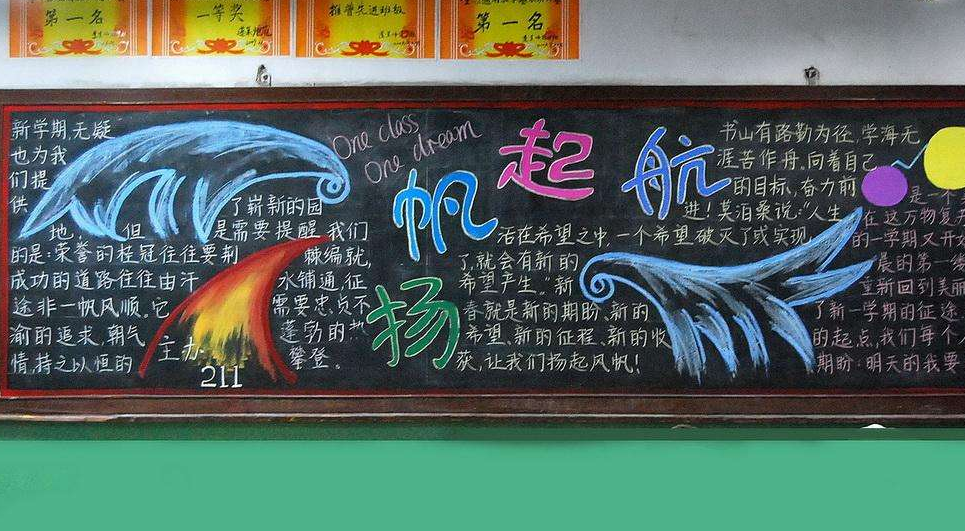 第一名
一等奖
推普先进班级
第一名
One class
One dream
扬帆起航
新学期,无疑
也为我
们提
供 了崭新的园
地, 但 是需要提醒我们
的是:荣誉的桂冠往往要荆 棘编就,
成功的道路往往由汗 水铺通,征
途非一帆风顺。它 需要忠贞不
渝的追求,朝气 蓬勃的热
情,持之以恒的 攀登。
主办
211
书山有路勤为径,学海无
涯苦作舟。向着自己
的目标,奋力前
进!莫泊桑说:"人生
活在希望之中,一个希望破灭了或实现
了,就会有新的
希望产生。"新
春就是新的期盼、新的
希望、新的征程、新的收
获,让我们扬起风帆!
是一个
在这万物复
的一学期又开
晨的第一缕
重新回到美丽
了新一学期的征途
的起点,我们每个人
期盼:明天的我要